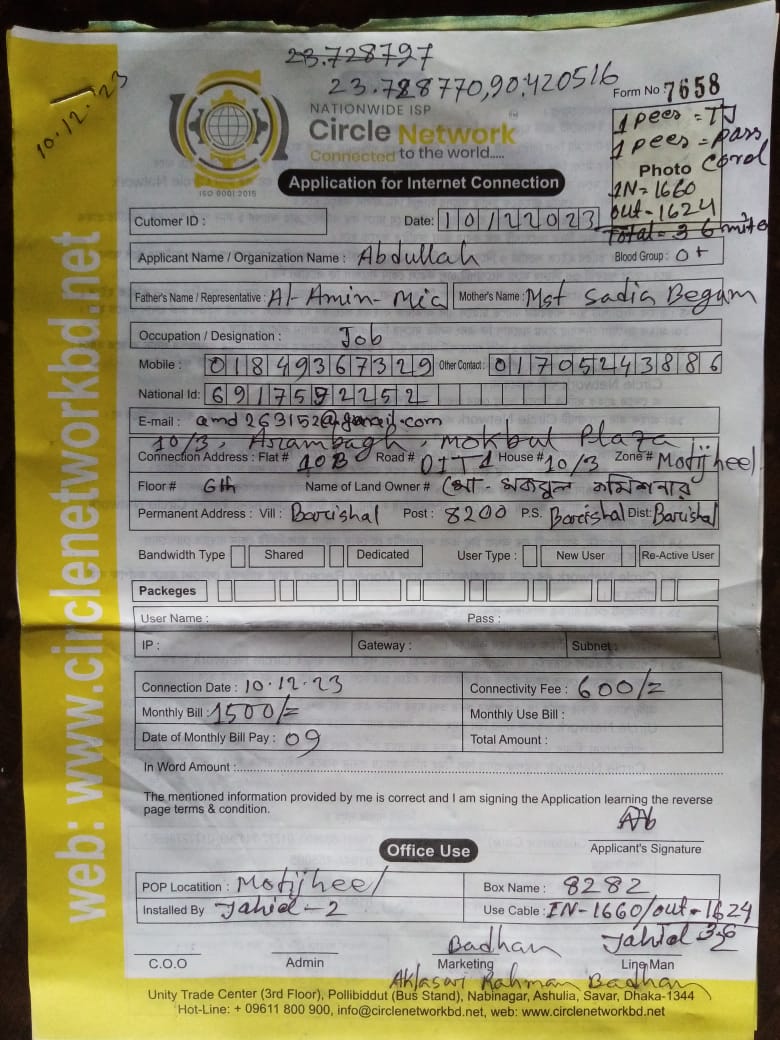 23.728797
23.728770,90.420516
10.12.23
Form No : 7658
NATIONWIDE ISP
Circle Network
Connected to the world.....
ISO 9001:2015
Application for Internet Connection
1 pees = TJ
1 pees = pass
Photo Cord
IN- 1660
out- 1624
Total = 36 mite
Cutomer ID :
Date: 10122023
Applicant Name / Organization Name : Abdullah
Blood Group : O+
Father's Name / Representative : Al- Amin- Mia
Mother's Name : Mst Sadia Begum
Occupation / Designation : Job
Mobile : 01849367329 Other Contact : 01705243886
National Id: 6917592252
E-mail : amd263152@gmail.com
10/3, Arambagh, Mokbul Plaza
Connection Address : Flat # 10B Road # DIT1 House # 10/3 Zone # Motijheel
Floor # 6th Name of Land Owner # মো - মকবুল কমিশনার
Permanent Address : Vill : Barishal Post : 8200 P.S. Barishal Dist: Barishal
Bandwidth Type Shared Dedicated User Type : New User Re-Active User
Packeges
User Name : Pass :
IP : Gateway : Subnet :
Connection Date : 10.12.23 Connectivity Fee : 600/=
Monthly Bill : 1500/= Monthly Use Bill :
Date of Monthly Bill Pay : 09 Total Amount :
In Word Amount :
The mentioned information provided by me is correct and I am signing the Application learning the reverse
page terms & condition.
Applicant's Signature
Office Use
POP Locatition : Motijheel Box Name : 8282
Installed By Jahid - 2 Use Cable : IN-1660/out-1624
Badhan Jahid 36
C.O.O Admin Marketing Line Man
Rahman Badhan
Unity Trade Center (3rd Floor), Pollibiddut (Bus Stand), Nabinagar, Ashulia, Savar, Dhaka-1344
Hot-Line: + 09611 800 900, info@circlenetworkbd.net, web: www.circlenetworkbd.net
web: www.circlenetworkbd.net